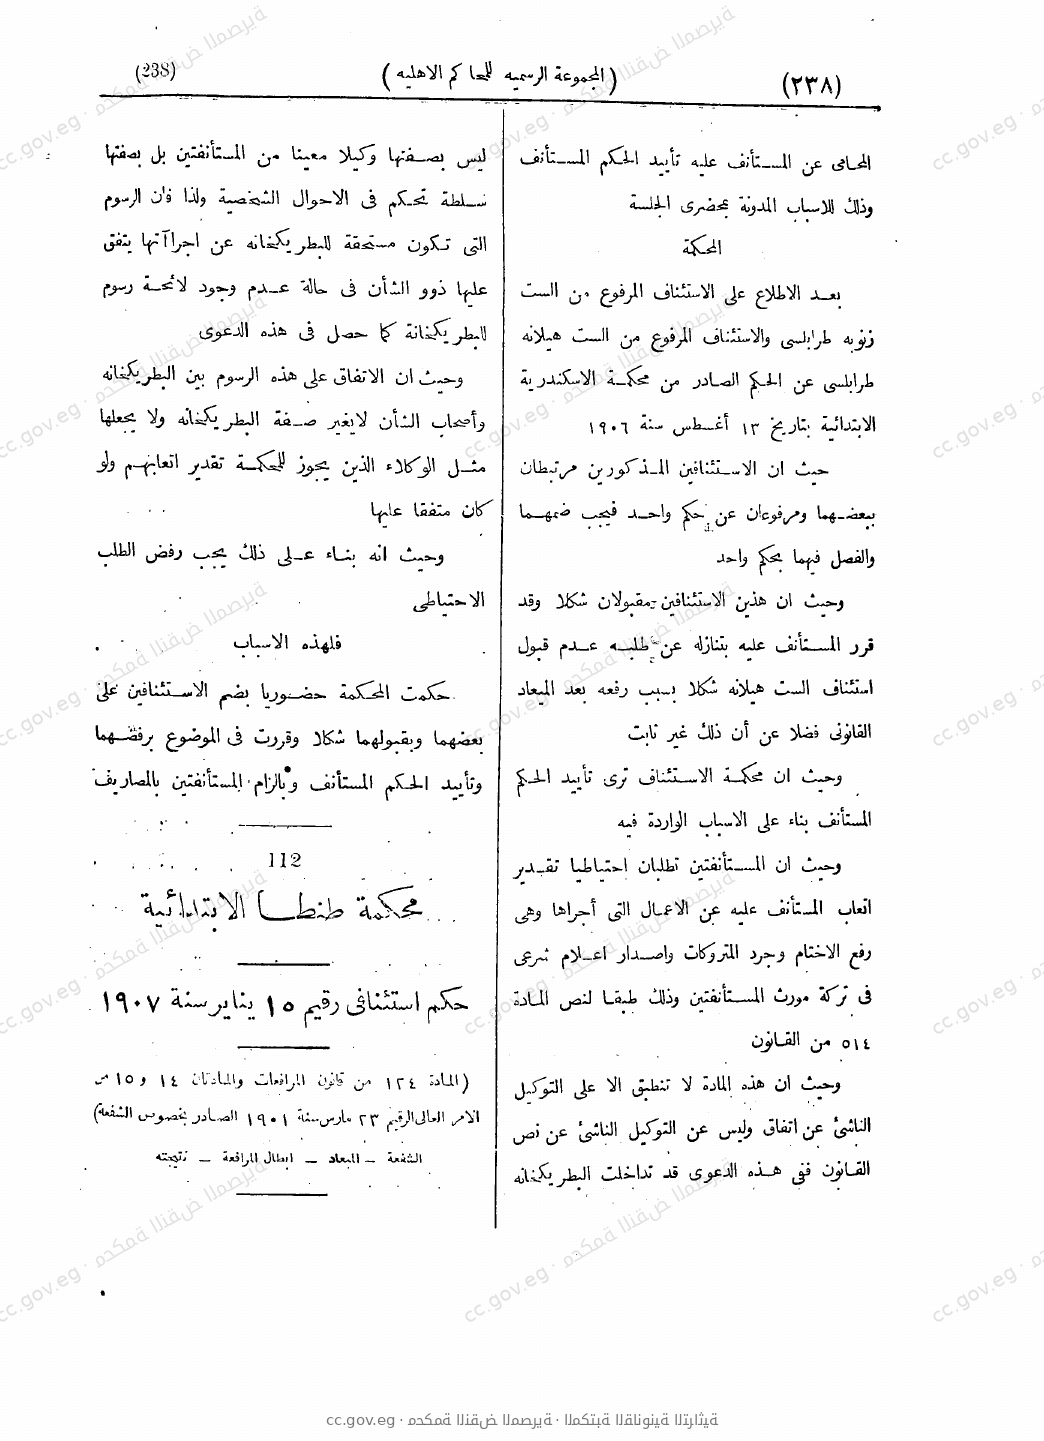 (٢٣٨)
(المجموعة الرسميه للمحاكم الاهليه)
(238)
المحامى عن المستأنف عليه تأييد الحكم المستأنف
وذلك للاسباب المدونة بمحضرى الجلسة
المحكمة
بعد الاطلاع على الاستئناف المرفوع من الست
زنوبه طرابلسى والاستئناف المرفوع من الست هيلانه
طرابلسى عن الحكم الصادر من محكمة الاسكندرية
الابتدائية بتاريخ ١٣ أغسطس سنة ١٩٠٦
حيث ان الاستئنافين المذكورين مرتبطان
ببعضهما ومرفوعان عن حكم واحد فيجب ضمهما
والفصل فيهما بحكم واحد
وحيث ان هذين الاستئنافين مقبولان شكلا وقد
قرر المستأنف عليه بتنازله عن طلبه عدم قبول
استئناف الست هيلانه شكلا بسبب رفعه بعد الميعاد
القانونى فضلا عن أن ذلك غير ثابت
وحيث ان محكمة الاستئناف ترى تأييد الحكم
المستأنف بناء على الاسباب الواردة فيه
وحيث ان المستأنفتين تطلبان احتياطيا تقدير
اتعاب المستأنف عليه عن الاعمال التى أجراها وهى
رفع الاختام وجرد المتروكات واصدار اعلام شرعى
فى تركة مورث المستأنفتين وذلك طبقا لنص المادة
٥١٤ من القانون
وحيث ان هذه المادة لا تنطبق الا على التوكيل
الناشئ عن اتفاق وليس عن التوكيل الناشئ عن نص
القانون ففى هذه الدعوى قد تداخلت البطريكخانه
ليس بصفتها وكيلا معينا من المستأنفتين بل بصفتها
سلطة تحكم فى الاحوال الشخصية ولذا فان الرسوم
التى تكون مستحقة للبطريكخانه عن اجراآتها يتفق
عليها ذوو الشأن فى حالة عدم وجود لائحة رسوم
للبطريكخانة كما حصل فى هذه الدعوى
وحيث ان الاتفاق على هذه الرسوم بين البطريكخانه
وأصحاب الشأن لا يغير صفة البطريكخانه ولا يجعلها
مثل الوكلاء الذين يجوز للمحكمة تقدير اتعابهم ولو
كان متفقا عليها
وحيث انه بناء على ذلك يجب رفض الطلب
الاحتياطى
فلهذه الاسباب
حكمت المحكمة حضوريا بضم الاستئنافين على
بعضهما وبقبولهما شكلا وقررت فى الموضوع برفضهما
وتأييد الحكم المستأنف وبالزام المستأنفتين بالمصاريف
112
محكمة طنطا الابتدائية
حكم استئنافى رقيم ١٥ يناير سنة ١٩٠٧
(المادة ١٢٤ من قانون المرافعات والمادتان ١٤ و ١٥ من
الامر العالى الرقيم ٢٣ مارس سنة ١٩٠١ الصادر بخصوص الشفعة)
الشفعة ــ الميعاد ــ ابطال المرافعة ــ نتيجته
cc.gov.eg · محكمة النقض المصرية · المكتبة القانونية التراثية